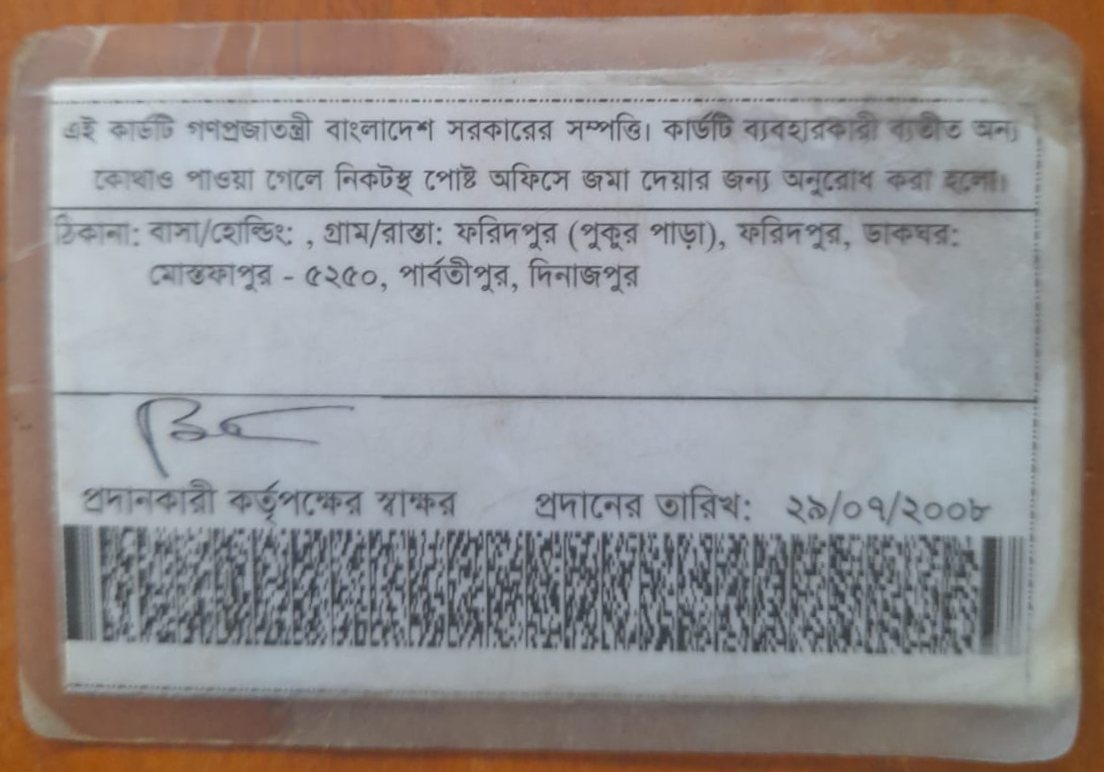 এই কার্ডটি গণপ্রজাতন্ত্রী বাংলাদেশ সরকারের সম্পত্তি। কার্ডটি ব্যবহারকারী ব্যতীত অন্য
কোথাও পাওয়া গেলে নিকটস্থ পোষ্ট অফিসে জমা দেয়ার জন্য অনুরোধ করা হলো।
ঠিকানা: বাসা/হোল্ডিং: , গ্রাম/রাস্তা: ফরিদপুর (পুকুর পাড়া), ফরিদপুর, ডাকঘর:
মোস্তফাপুর - ৫২৫০, পার্বতীপুর, দিনাজপুর
প্রদানকারী কর্তৃপক্ষের স্বাক্ষর প্রদানের তারিখ: ২৯/০৭/২০০৮